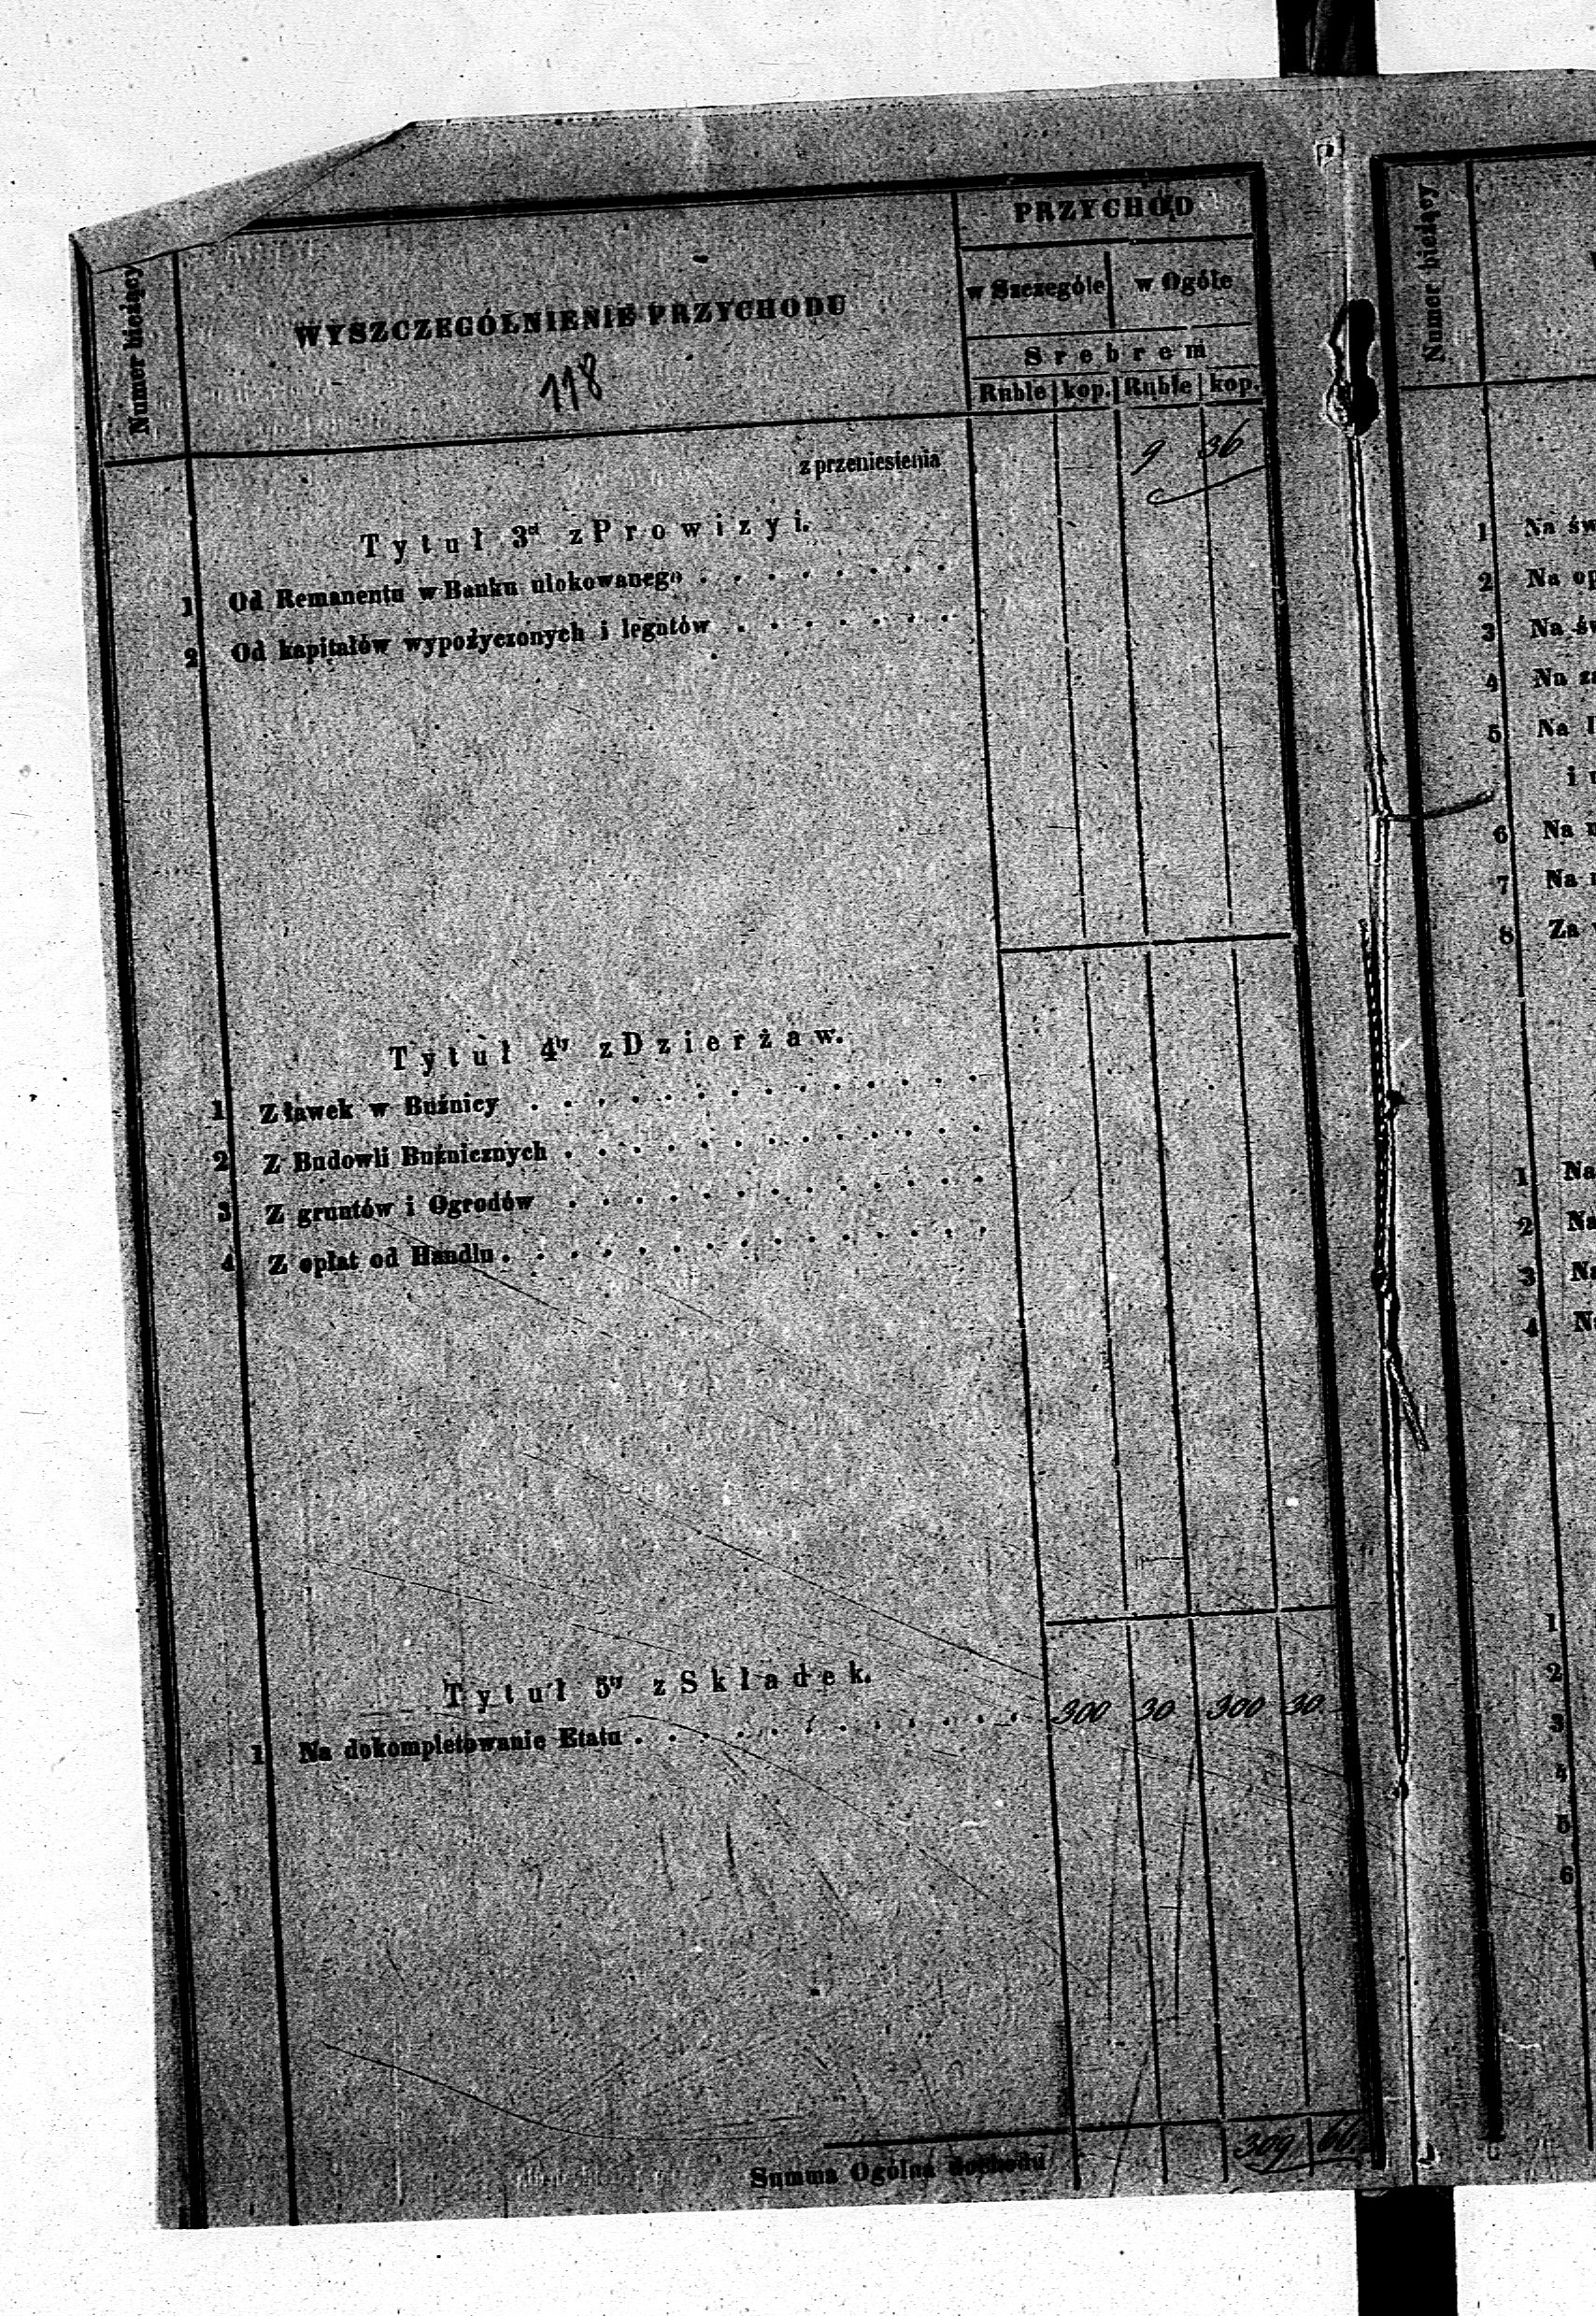 PRZYCHÓD
Numer bieżący
WYSZCZEGÓLNIENIE PRZYCHODU
w Szczególe w Ogóle
Srebrem
Ruble kop. Ruble kop.
118
z przeniesienia 9 36
Tytuł 3ci z Prowizyi.
1 Od Remanentu w Banku ulokowanego
2 Od kapitałów wypożyczonych i legatów
Tytuł 4ty z Dzierżaw.
1 Z ławek w Bużnicy
2 Z Budowli Bużnicznych
3 Z gruntów i Ogrodów
4 Z opłat od Handlu
Tytuł 5ty z Składek.
1 Na dokompletowanie Etatu 300 30 300 30
Summa Ogólna dochodu 309 66
Numer bieżący
1 Na
2 Na
3 Na
4 Na
5 Na
i
6 Na
7 Na
8 Za
1 Na
2 Na
3 Na
4 Na
1
2
3
4
5
6